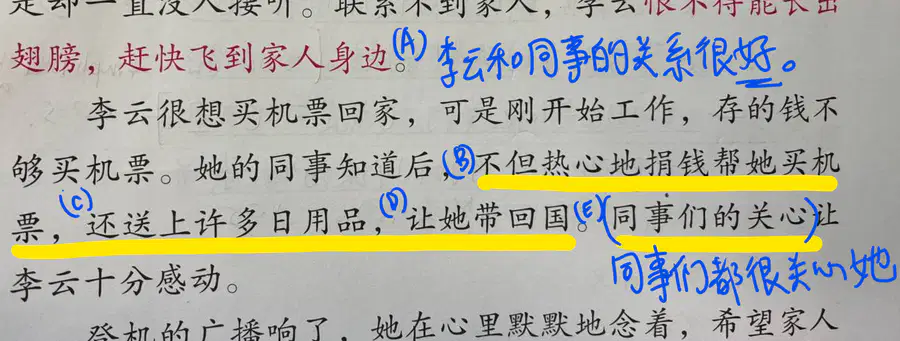 是却一直没人接听。联系不到家人，李云恨不得能长出
翅膀，赶快飞到家人身边。(A) 李云和同事的关系很好。
李云很想买机票回家，可是刚开始工作，存的钱不
够买机票。她的同事知道后，(B)不但热心地捐钱帮她买机
票，(C)还送上许多日用品，(D)让她带回国。(E)(同事们的关心)让
李云十分感动。
同事们都很关心她
登机的广播响了，她在心里默默地念着，希望家人